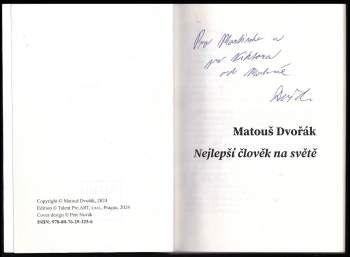 Copyright © Matouš Dvořák, 2024
Edition © Talent Pro ART, s.r.o., Prague, 2024
Cover design © Petr Novák
ISBN: 978-80-76-29-125-6
Pro a
pro Viktora
od
Matouš Dvořák
Nejlepší člověk na světě